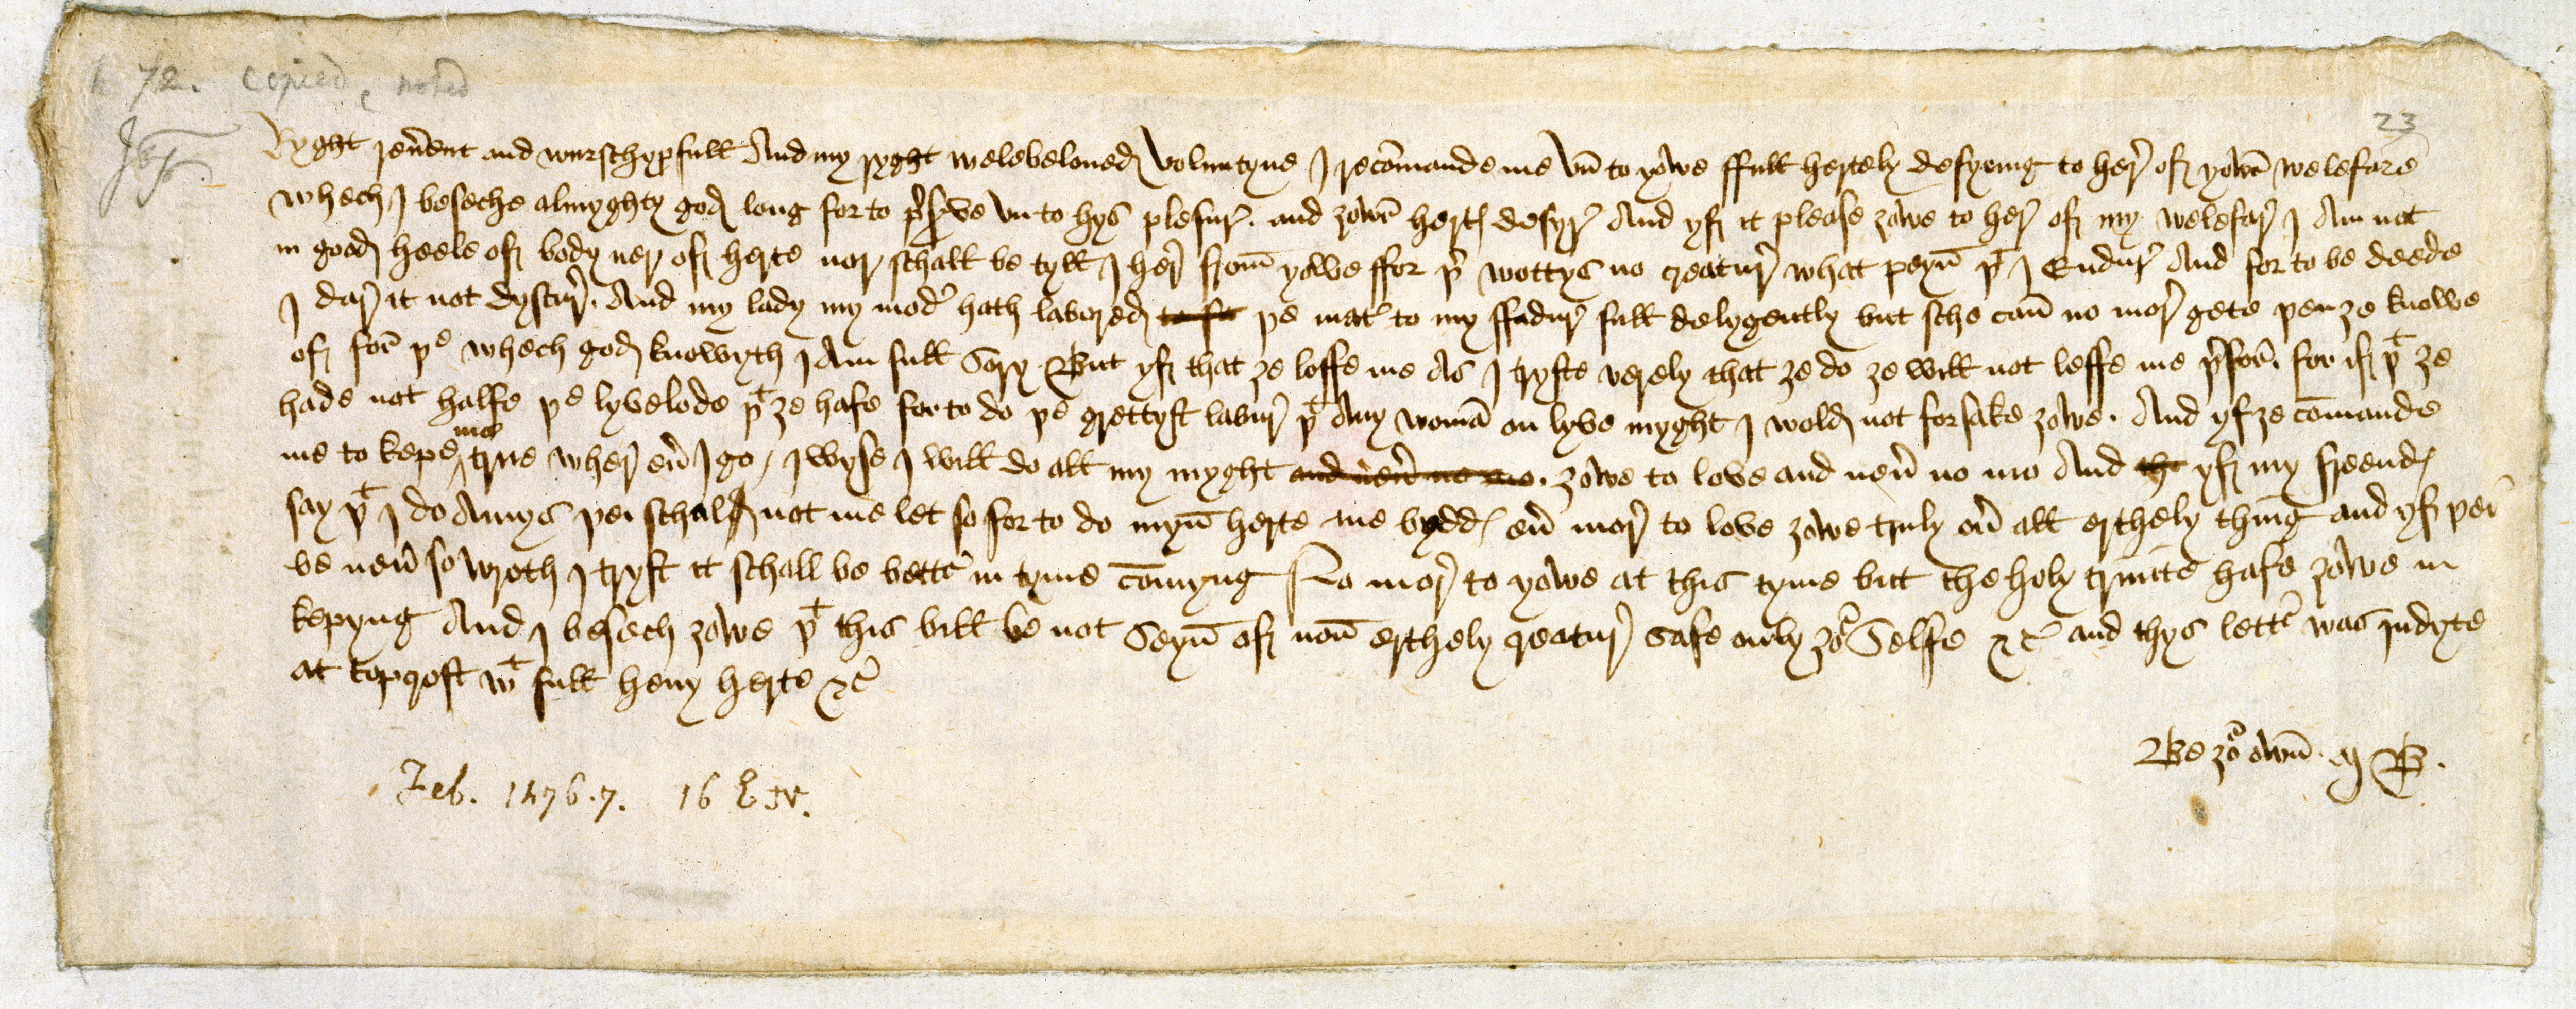 72. copied, noted
23
Ryght reũent and wurschypfull And my ryght welebeloued Voluntyne I recõmande me vn̄to yowe ffull hertely desyring to her̛ of yowr̛ welefare
whech I beseche almyghty god long for to p̛s̛ve vn to hys plesur̛. and ȝowr̛ hert̛ desyr̛ And yf it please ȝowe to her̛ of my welefar̛ I Am not
in good heele of body ner of herte nor schall be tyll I her̛ from̄ yowe ffor þ̛ wottys no creatur̛ what peyn̄ þᵗ I Endur̛ And for to be deede
I dar̛ it not dyscur̛. And my lady my mod̛ hath labored to þe mat̛ to my ffadur̛ full delygently but sche can̄ no mor̛ gete þen ȝe knowe
of for̛ þᵉ whech god knowyth I Am full Sory But yf that ȝe loffe me As I tryste verely that ȝe do ȝe will not leffe me þ̛for̛. for if þᵗ ȝe
hade not halfe þe lyvelode þᵗ ȝe hafe for to do þe grettyst labur̛ þᵗ Any womā on lyve myght I wold not forsake ȝowe. And yf ȝe cõmande
me to kepe me true wher̛ eũ I go / I wyse I will do all my myght and neũ no mo. ȝowe to love and neũ no mo And the yf my freend̛
say þᵗ I do Amys þei schal not me let so for to do myn̄ herte me bydd̛ eũ mor̛ to love ȝowe truly oũ all erthely thing and yf þei
be neũ so wroth I tryst it schall be bett̛ in tyme cõmyng No mor̛ to yowe at this tyme but the holy trinite hafe ȝowe in
kepyng And I besech ȝowe þᵗ this bill be not Seyn̄ of non̄ erthely creatur̛ safe only ȝoʳ Selfe &c̛ and thys lett̛ was indyte
at topcroft wᵗ full heuy herte &c̛
Be ȝoʳ own̄. M B.
Feb. 1476.7. 16 E IV.